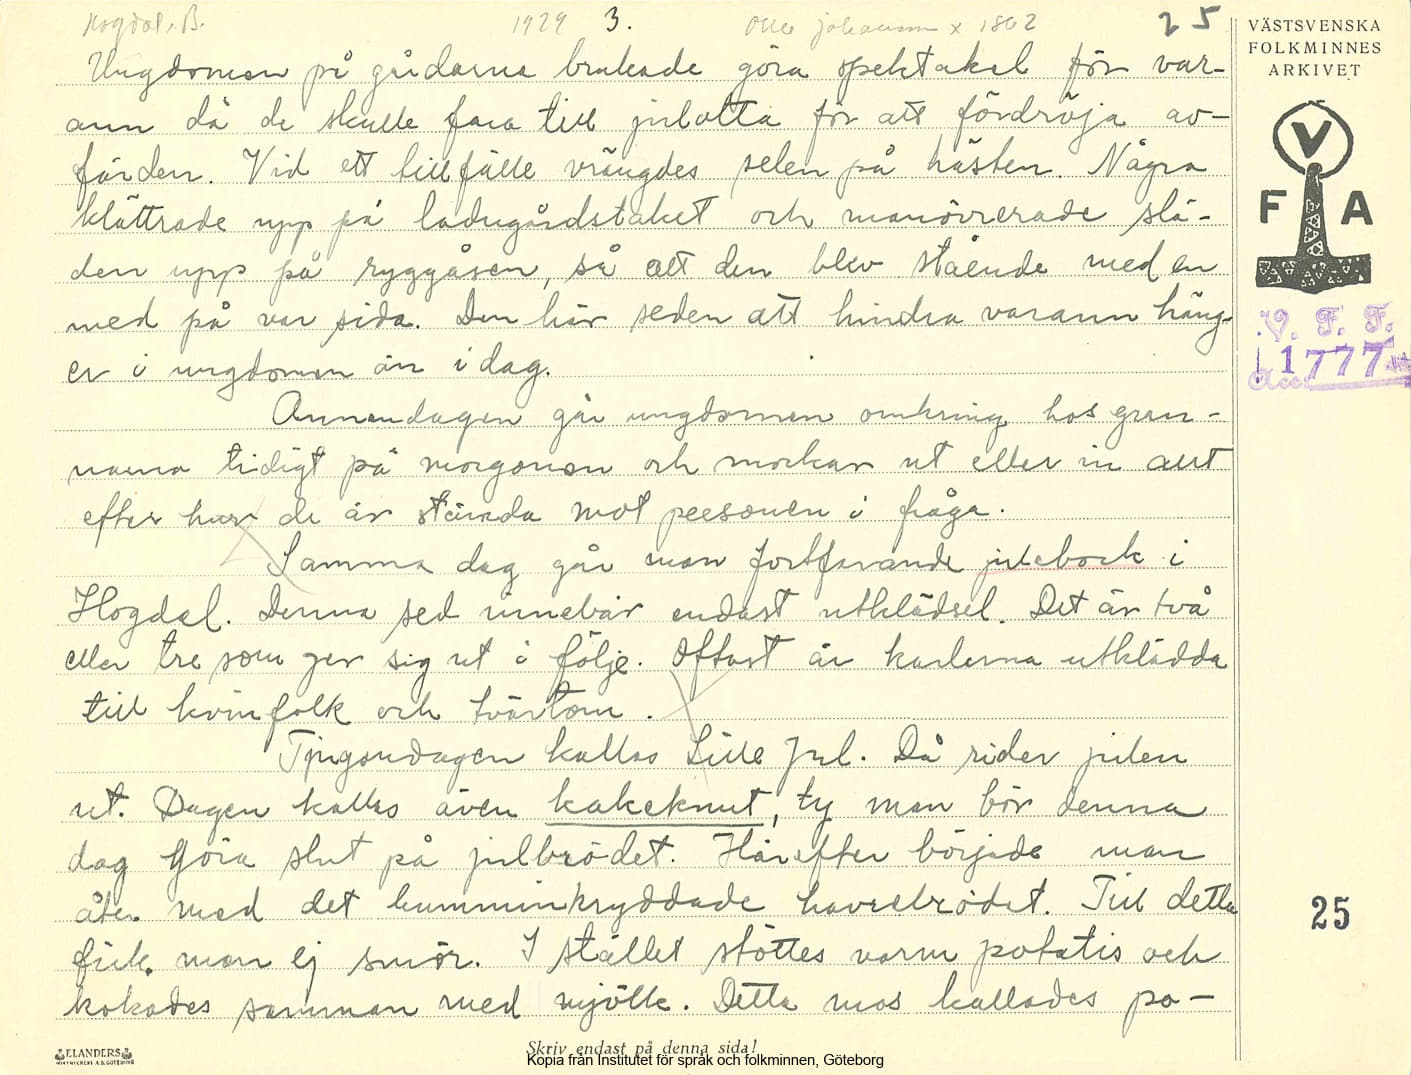 Hogdal. B. 1929 3. Olle Johansson x 1862 25
Ungdomen på gårdarna brukade göra spektakel för var-
ann då de skulle fara till julotta för att fördröja av-
färden. Vid ett tillfälle vrängdes selen på hästen. Några
klättrade upp på ladugårdstaket och manövrerade slä-
den upp på ryggåsen, så att den blev stående med en
med på var sida. Den här seden att hindra varann häng-
er i ungdomen än i dag.
Annandagen går ungdomen omkring hos gran-
narna tidigt på morgonen och mockar ut eller in allt
efter hur de är stämda mot personen i fråga.
Samma dag går man fortfarande julebock i
Hogdal. Denna sed innebär endast utklädsel. Det är två
eller tre som ger sig ut i följe. Oftast är karlarna utklädda
till kvinfolk och tvärtom.
Tjugondagen kallas Lille Jul. Då rider julen
ut. Dagen kallas även kakeknut, ty man bör denna
dag göra slut på julbrödet. Härefter började man
åter med det kumminkryddade havrebrödet. Till detta
fick man ej smör. I stället stöttes varm potatis och
kokades samman med mjölk. Detta mos kallades po-
VÄSTSVENSKA
FOLKMINNES
ARKIVET
V
F A
V. F. F.
Acc. 1777
25
ELANDERS
Skriv endast på denna sida!
Kopia från Institutet för språk och folkminnen, Göteborg